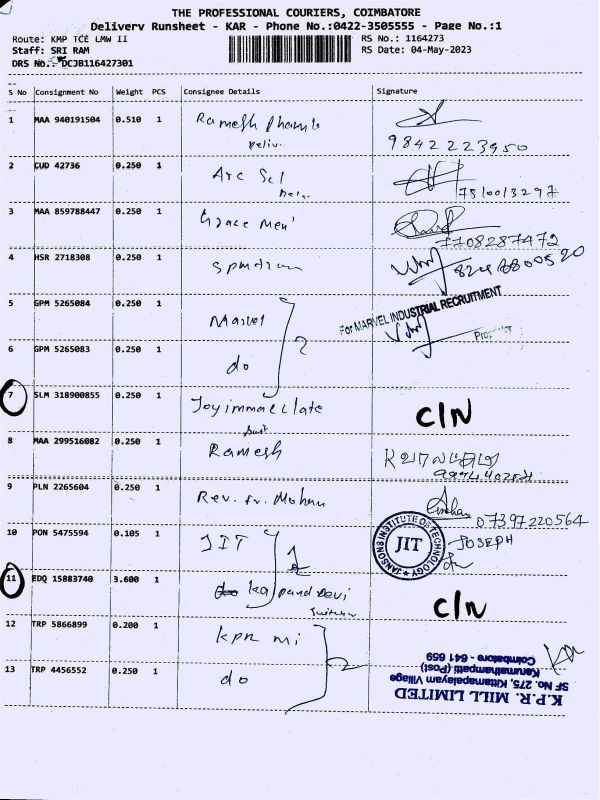 THE PROFESSIONAL COURIERS, COIMBATORE
Delivery Runsheet - KAR - Phone No.:0422-3505555 - Page No.:1
Route: KMP TCE LMW II RS No.: 1164273
Staff: SRI RAM RS Date: 04-May-2023
DRS No.: DCJB116427301
S No Consignment No Weight PCS Consignee Details Signature
1 MAA 940191504 0.510 1 Ramesh
9842223950
2 CUD 42736 0.250 1 Arc Sci
7510013297
3 MAA 859788447 0.250 1 Grace Men'
7708287472
4 HSR 2718308 0.250 1
For MARVEL INDUSTRIAL RECRUITMENT
5 GPM 5265084 0.250 1 Marvel
6 GPM 5265083 0.250 1 do
7 SLM 318900855 0.250 1 Joy immacclate C/N
8 MAA 299516082 0.250 1 Ramesh
9 PLN 2265604 0.250 1 Rev. Fr. Mohan
07397220564
10 PON 5475594 0.105 1 JIT JOSEPH
JANSONS INSTITUTE OF TECHNOLOGY
JIT
11 EDQ 15883740 3.600 1 C/N
12 TRP 5866899 0.200 1 kpr mi
13 TRP 4456552 0.250 1 do 2
K.P.R. MILL LIMITED
SF No. 275, Kittampalayam Village
Karumathampatti (Post)
Coimbatore - 641 659